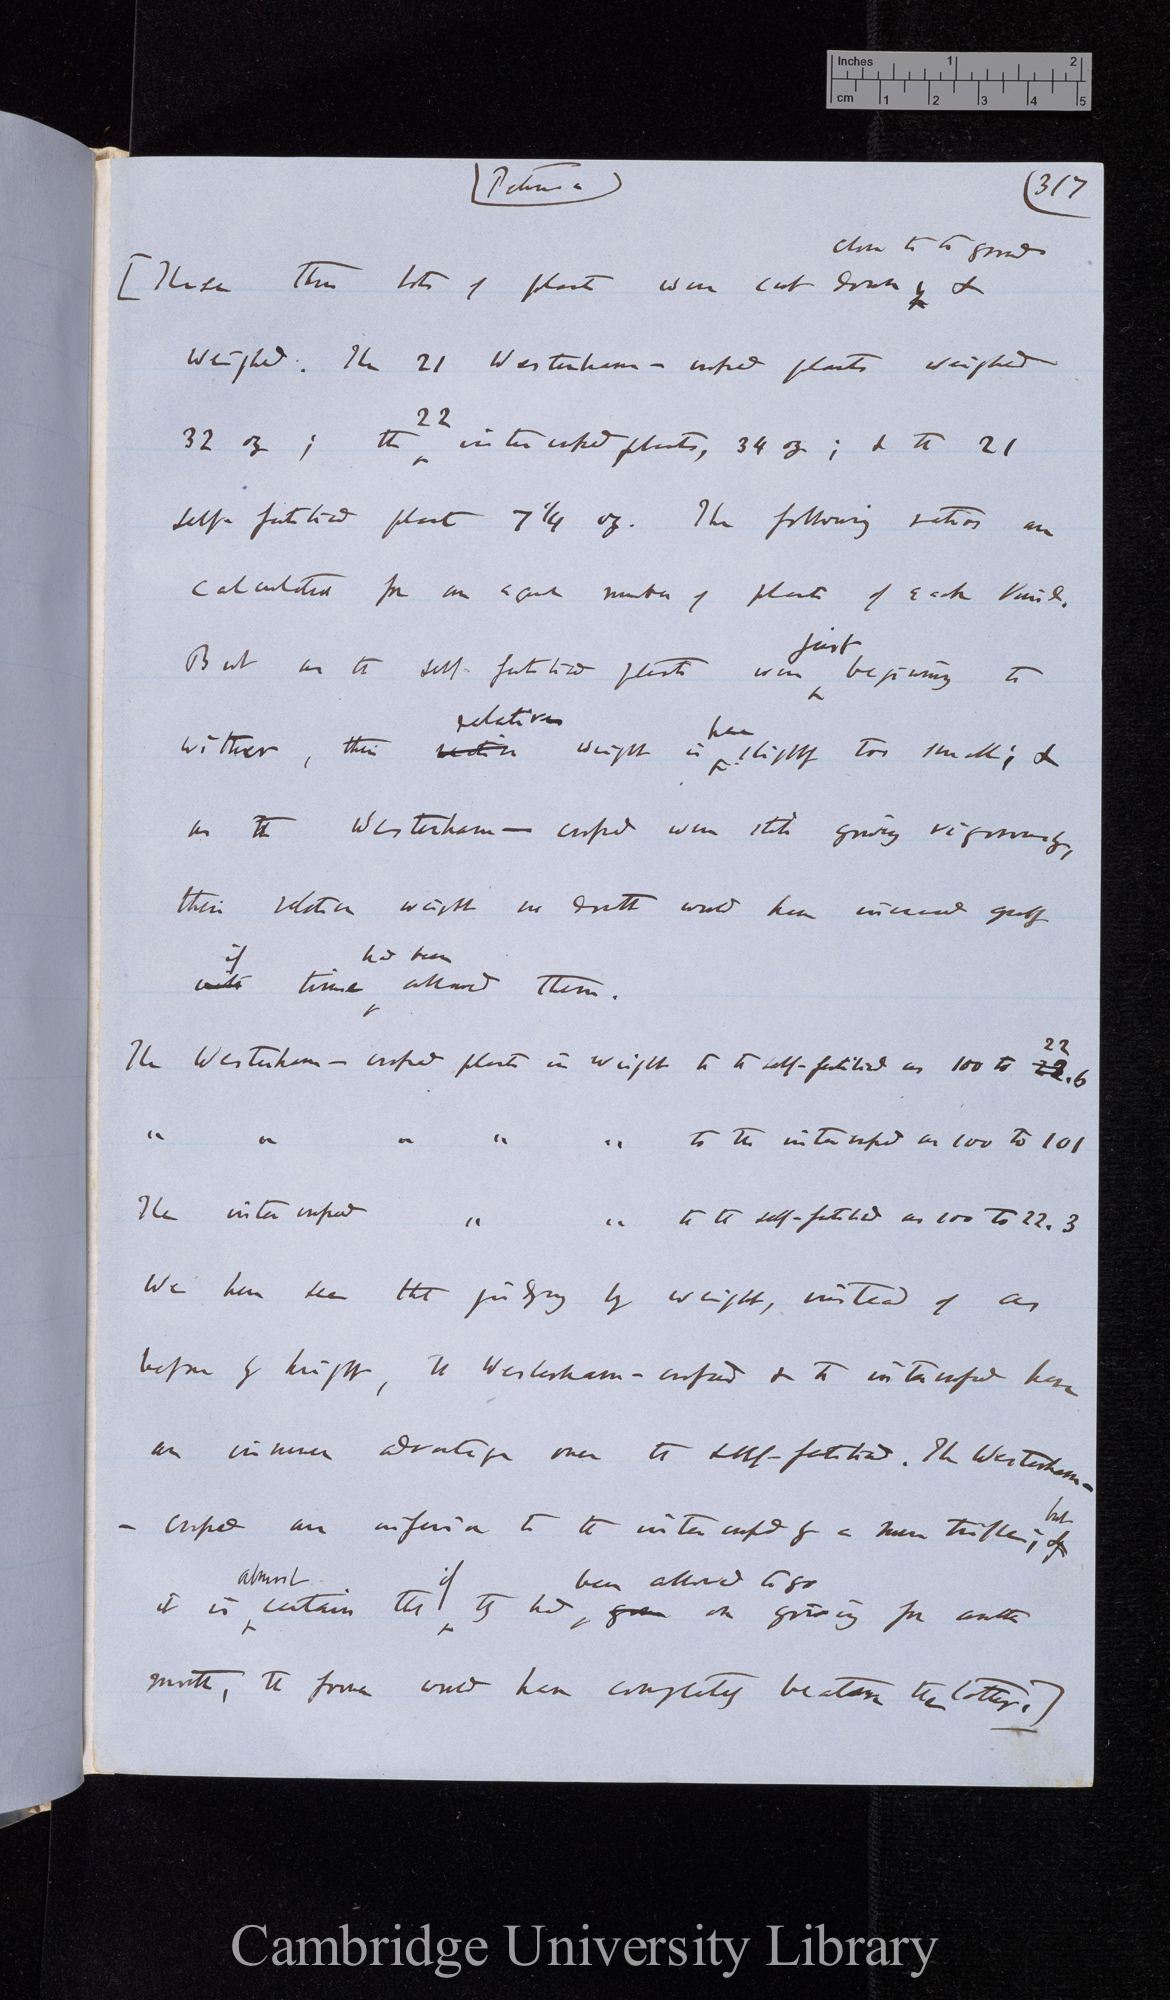 Inches 1 2
cm 1 2 3 4 5
Petunia
317
close to to ground
[These three lots of plants were cut down &
weighed. The 21 Westerham-crossed plants weighed
22
32 oz ; the intercrossed plants, 34 oz ; & the 21
self-fertilised plants 7 1/4 oz. The following ratios are
calculated for an equal number of plants of each kind.
just
But as the self-fertilised plants were beginning to
relative here
wither, their relative weight is slightly too small; &
as the Westerham-crossed were still growing vigorously,
their relative weight no doubt would have increased greatly
if had been
with time allowed them.
22
The Westerham-crossed plants in weight to the self-fertilised as 100 to .6
" " " " " to the intercrossed as 100 to 101
The intercrossed " " to the self-fertilised as 100 to 22.3
We here see that judging by weight, instead of as
before by height, the Westerham-crossed & the intercrossed have
an immense advantage over the self-fertilised. The Westerham-
but
- crossed are inferior to the intercrossed by a mere trifle; &
almost if been allowed to go
it is certain that they had gone on growing for another
month, the former would have completely beaten the latter.]
Cambridge University Library